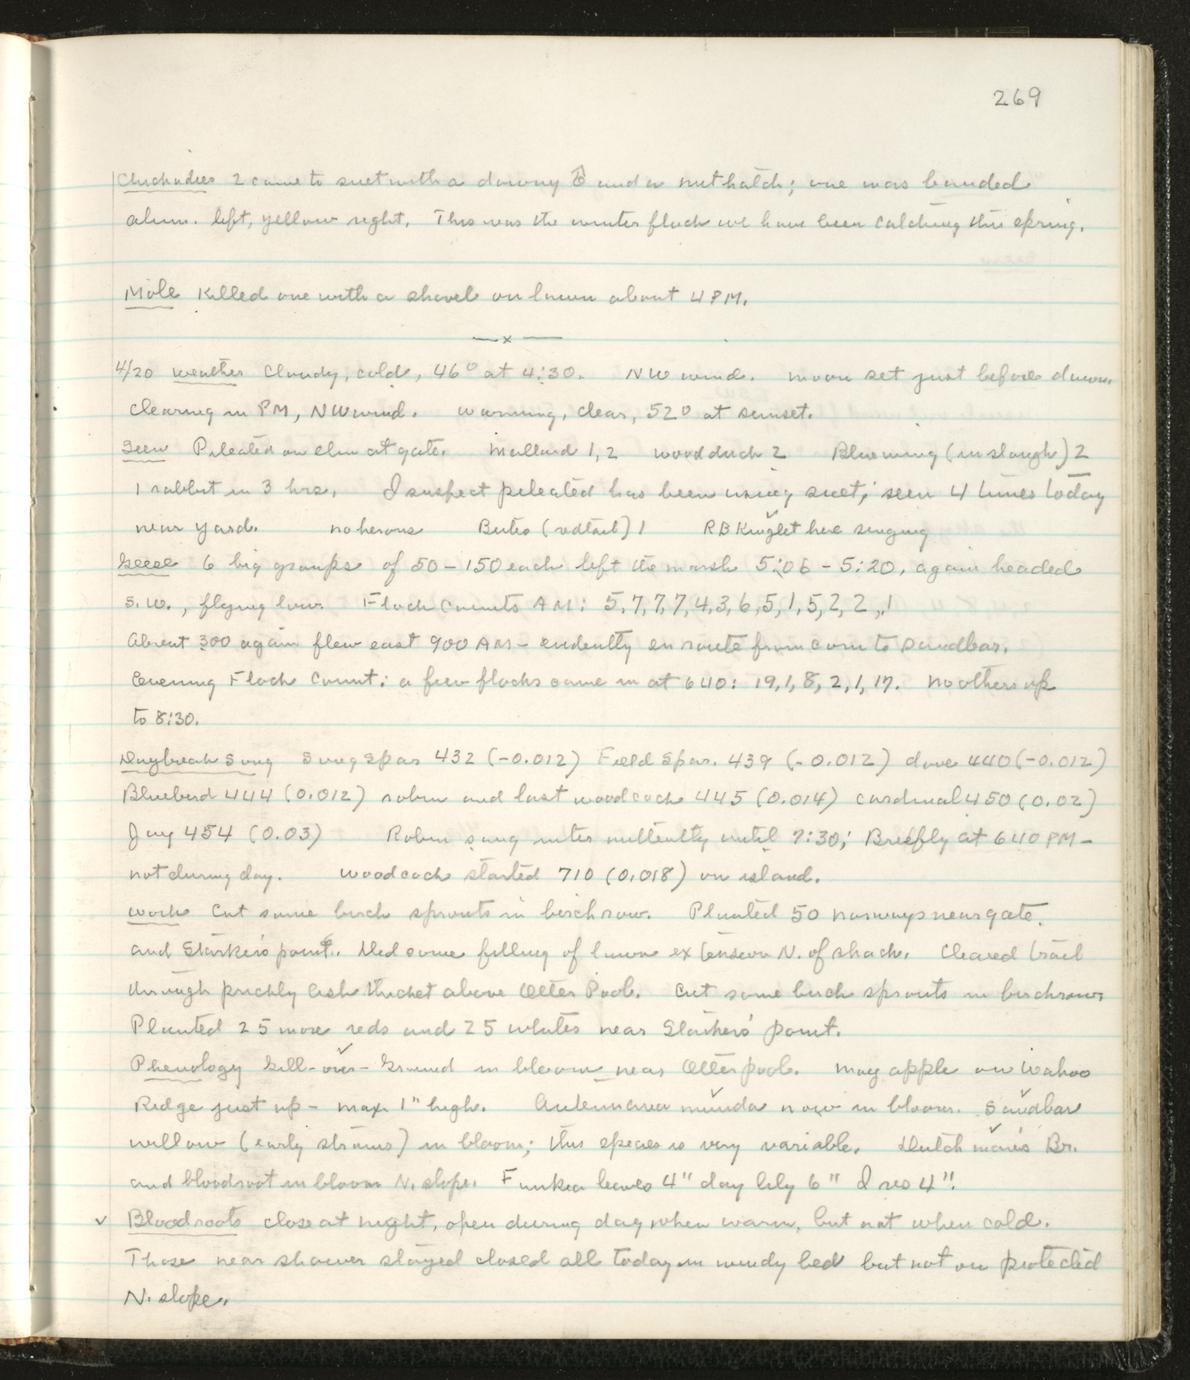 269
Chickadees 2 came to suet with a downy ♂ and a nuthatch; one was banded
alum. left, yellow right. This was the winter flock we have been catching this spring.
Mole Killed one with a shovel on lawn about 4 PM.
—x—
4/20 weather Cloudy, cold, 46° at 4:30. NW wind. moon set just before dawn.
Clearing in PM, NW wind. warming, clear, 52° at sunset.
Seen Pileated on elm at gate. Mallard 1, 2 woodduck 2 Bluewing (in slough) 2
1 rabbit in 3 hrs. I suspect pileated has been using suet; seen 4 times today
near yard. no herons Buteo (redtail) 1 RB Kinglet here singing
Geese 6 big groups of 50-150 each left the marsh 5:06 - 5:20, again headed
S.W., flying low. Flock Counts AM: 5,7,7,7,4,3,6,5,1,5,2,2,,1
About 300 again flew east 900 AM - evidently en route from corn to Sandbar.
Evening Flock Count: a few flocks came in at 640: 19,1,8,2,1,17. No others up
to 8:30.
Daybreak Song Song Spar 432 (-0.012) Field Spar. 439 (-0.012) dove 440 (-0.012)
Bluebird 444 (0.012) robin and last woodcock 445 (0.014) cardinal 450 (0.02)
Jay 454 (0.03) Robin sang intermittently until 7:30; Briefly at 640 PM -
not during day. Woodcock started 710 (0.018) on island.
Work Cut some birch sprouts in birchrow. Planted 50 norways near gate
and Starker's point. Did some filling of lawn extension N. of shack. Cleared trail
through prickly ash thicket above Otter Pool. Cut some birch sprouts in birchrow
Planted 25 more reds and 25 whites near Starker's point.
Phenology Gill-over-Ground in bloom near Otter pool. May apple on Wahoo
Ridge just up - max. 1" high. Antennaria now in bloom. Sandbar
willow (early strains) in bloom; this species is very variable. Dutchman's Br.
and bloodroot in bloom N. slope. Funkia leaves 4" day lily 6" Iris 4".
✓ Bloodroots close at night, open during day when warm, but not when cold.
Those near shower stayed closed all today in windy bed but not on protected
N. slope.